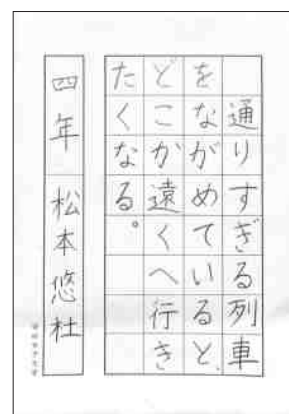 通りすぎる列車
をながめていると、
どこか遠くへ行き
たくなる。
四年 松本悠杜